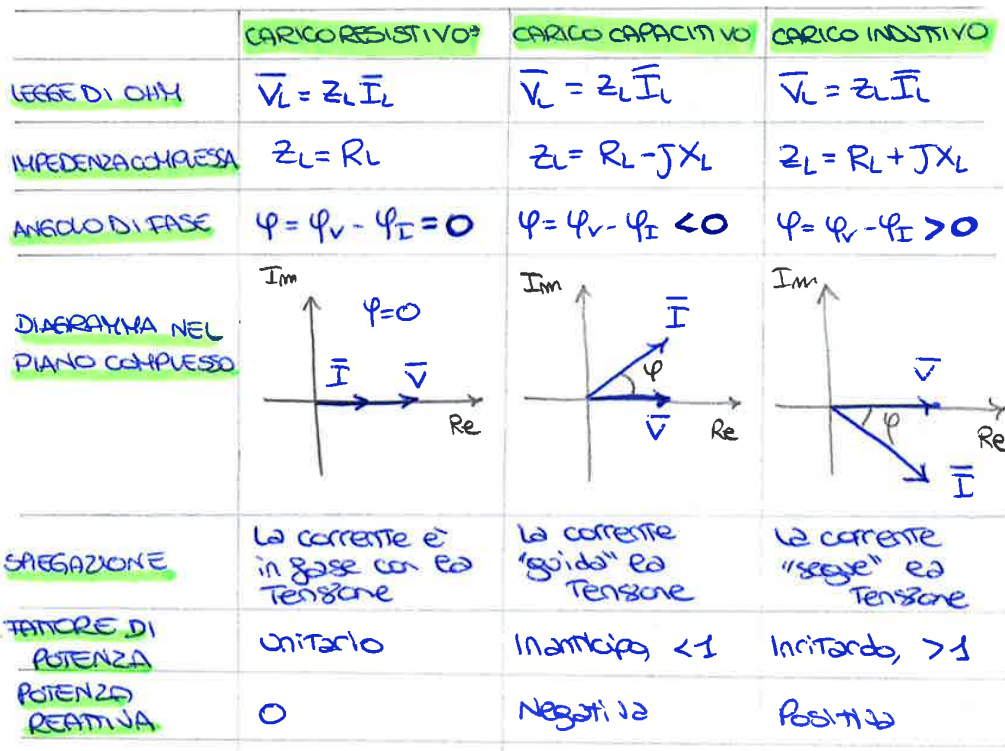 CARICO RESISTIVO: CARICO CAPACITIVO CARICO INDUTTIVO
LEGGE DI OHM V̅L = ZL I̅L V̅L = ZL I̅L V̅L = ZL I̅L
IMPEDENZA COMPLESSA ZL = RL ZL = RL - JXL ZL = RL + JXL
ANGOLO DI FASE φ = φV - φI = 0 φ = φV - φI < 0 φ = φV - φI > 0
DIAGRAMMA NEL
PIANO COMPLESSO
Im φ=0 I̅ V̅ Re
Im I̅ φ V̅ Re
Im V̅ φ I̅ Re
SPIEGAZIONE
La corrente è
in fase con la
Tensione
La corrente
"guida" la
Tensione
La corrente
"segue" la
Tensione
FATTORE DI
POTENZA
unitario
In anticipo, <1
In ritardo, >1
POTENZA
REATTIVA
0
Negativa
Positiva